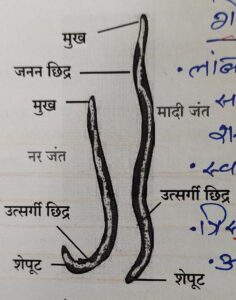 मुख
जनन छिद्र
मुख
मादी जंत
नर जंत
उत्सर्गी छिद्र
उत्सर्गी छिद्र
शेपूट
शेपूट